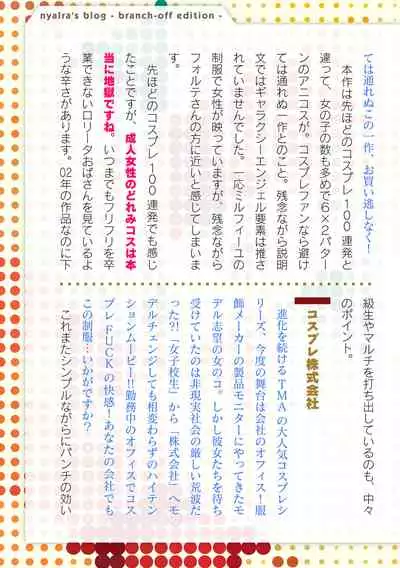 nyalra's blog - branch-off edition -
ては通れぬこの一作、お買い逃しなく！
本作は先ほどのコスプレ100連発と
違って、女の子の数も多めで6×2パター
ンのアニコスが。コスプレファンなら避け
ては通れぬ一作とのこと。残念ながら説明
文ではギャラクシーエンジェル要素は推さ
れていませんでした。一応ミルフィーユの
制服で女性が映っていますが、残念ながら
フォルテさんの方に近いと感じてしまいま
す。
先ほどのコスプレ100連発でも感じ
たことですが、成人女性のどれみコスは本
当に地獄ですね。いつまでもフリフリを卒
業できないロリータおばさんを見ているよ
うな辛さがあります。02年の作品なのに下
級生やマルチを打ち出しているのも、中々
のポイント。
コスプレ株式会社
進化を続けるTMAの大人気コスプレシ
リーズ、今度の舞台は会社のオフィス！服
飾メーカーの製品モニターにやってきたモ
デル志望の女のコ。しかし彼女たちを待ち
受けていたのは非現実社会の厳しい荒波だ
った?!「女子校生」から「株式会社」へモ
デルチェンジしても相変わらずのハイテン
ションムービー!!勤務中のオフィスでコス
プレFUCKの快感！あなたの会社でも
この制服…いかがですか？
これまたシンプルながらにパンチの効い